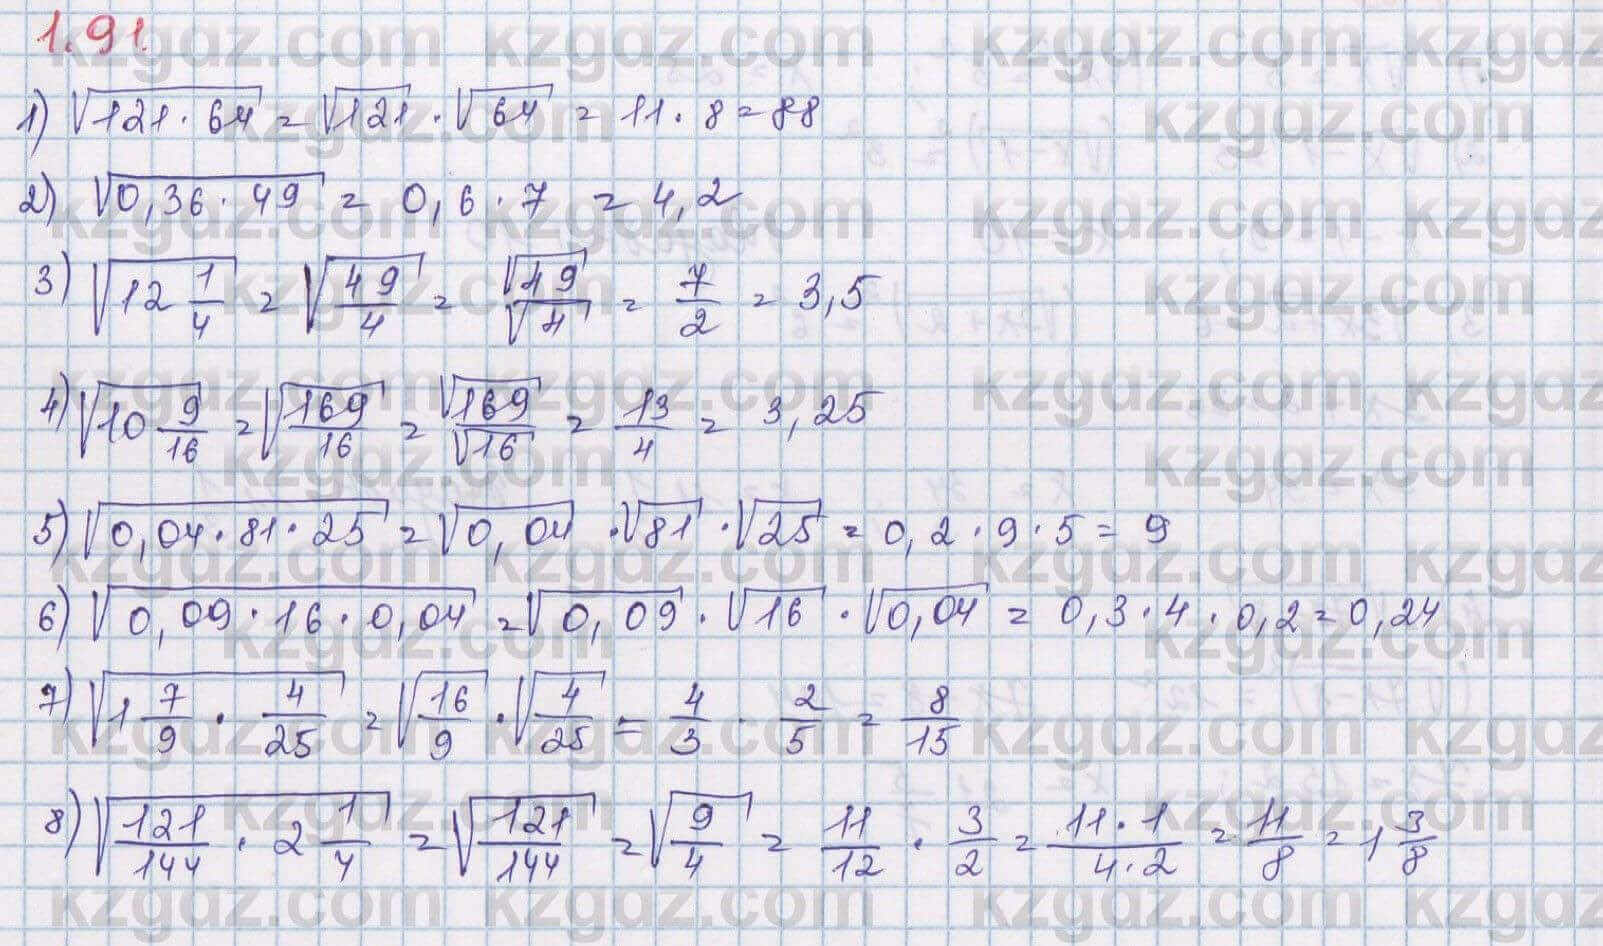 1.91.
1) √(121 · 64) = √121 · √64 = 11 · 8 = 88
2) √(0,36 · 49) = 0,6 · 7 = 4,2
3) √(12 1/4) = √(49/4) = √49/√4 = 7/2 = 3,5
4) √(10 9/16) = √(169/16) = √169/√16 = 13/4 = 3,25
5) √(0,04 · 81 · 25) = √0,04 · √81 · √25 = 0,2 · 9 · 5 = 9
6) √(0,09 · 16 · 0,04) = √0,09 · √16 · √0,04 = 0,3 · 4 · 0,2 = 0,24
7) √(1 7/9 · 4/25) = √(16/9) · √(4/25) = 4/3 · 2/5 = 8/15
8) √(121/144 · 2 1/4) = √(121/144) = √(9/4) = 11/12 · 3/2 = 11·1/4·2 = 11/8 = 1 3/8
kzgdz.com